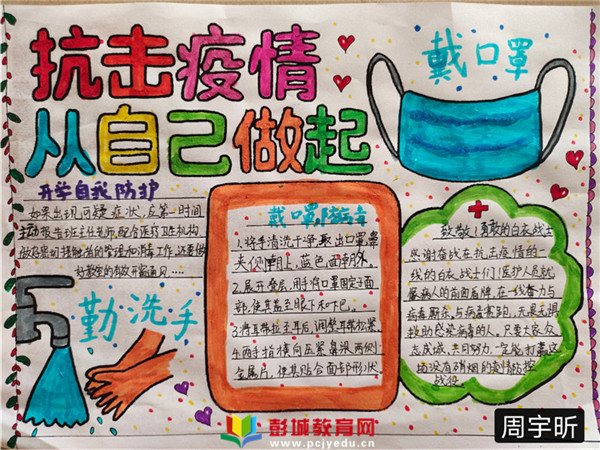 抗击疫情
从自己做起
戴口罩
开学自我防护
如果出现可疑症状,应第一时间
主动报告班主任老师,配合医疗卫生机构
做好密切接触者的管理和消毒工作,还要做
好教室的有效开窗通风....
勤洗手
戴口罩防病毒
1.将手清洗干净,取出口罩,鼻
夹侧朝上,蓝色面朝外。
2.展开叠层,用手将口罩固定面
部,使其盖至眼下和下巴。
3.将耳带拉至耳后,调整耳带松紧。
4.两手指横向压紧鼻梁两侧
金属片,使其贴合面部形状。
致敬!勇敢的白衣战士
感谢奋战在抗击疫情的一
线的白衣战士们!医护人员就
像病人的前面盾牌,在一线奋力与
病毒厮杀,与病毒赛跑,无畏无惧
救助感染病毒的人。只要大家众
志成城,共同努力,一定能打赢这
场没有硝烟的疫情防控
战役
彭城教育网
www.pcjyedu.cn
周宇昕